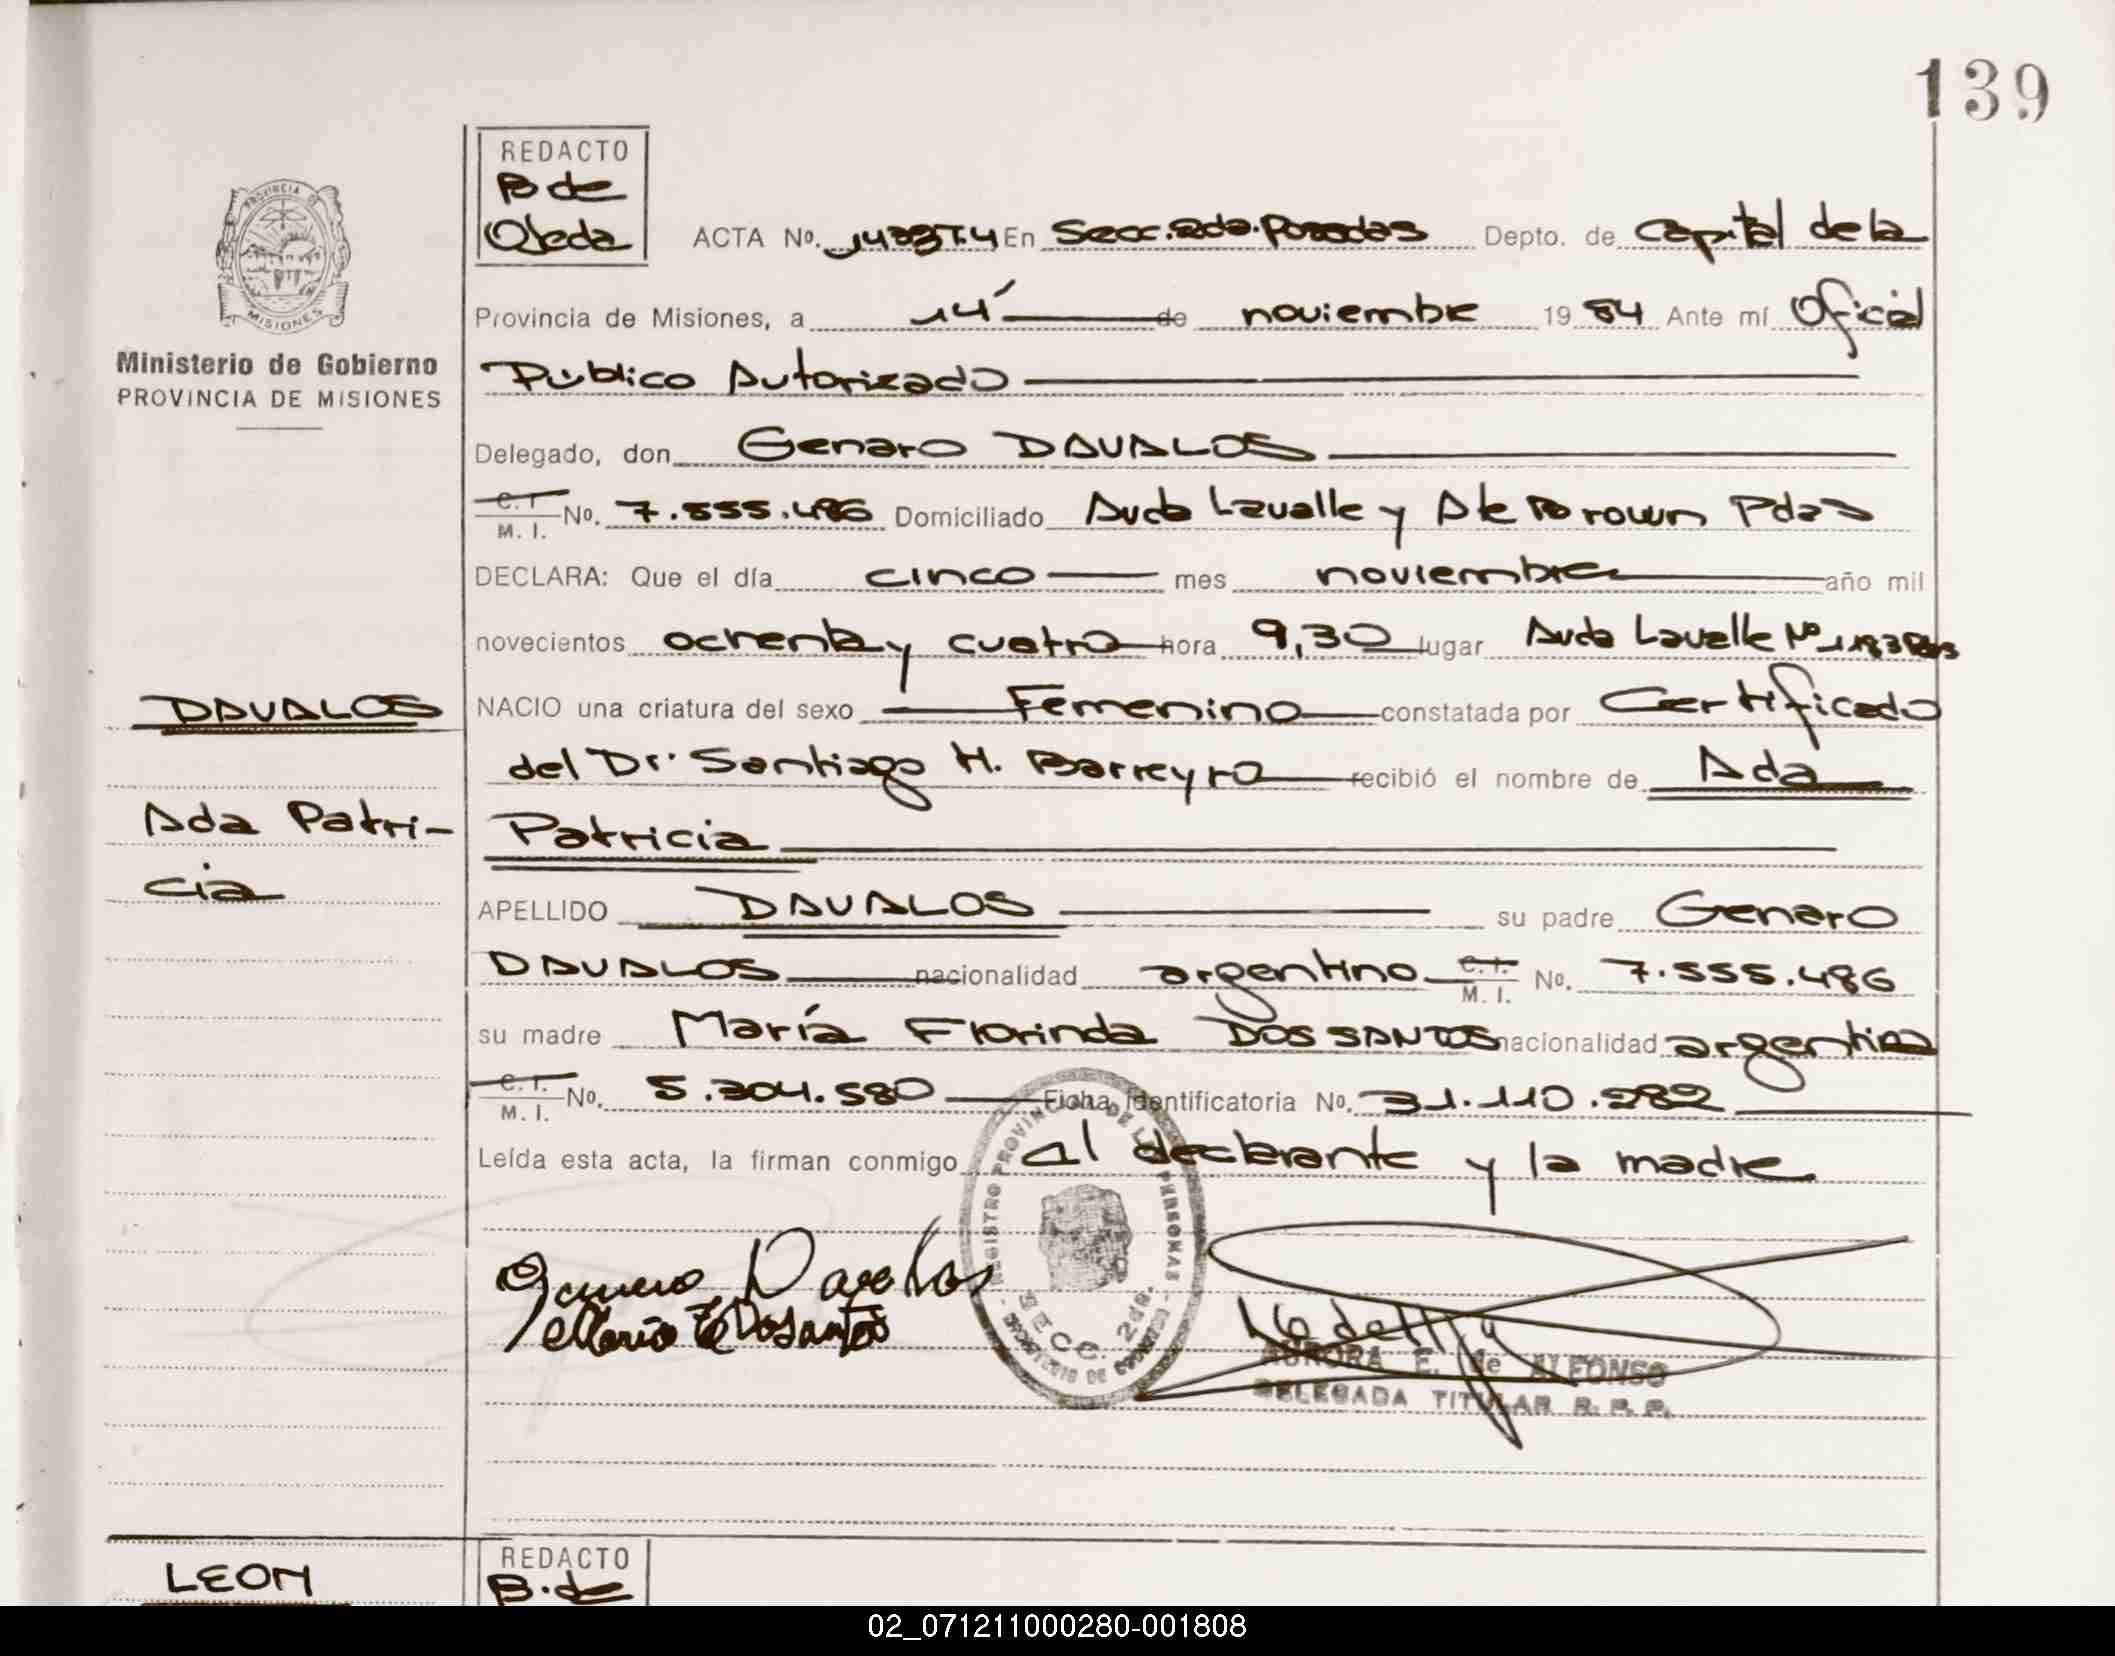 139
REDACTO
B de
Ojeda
ACTA No. 1433T.4 En Secc. 2da. Posadas Depto. de Capital de la
PROVINCIA DE
MISIONES
Provincia de Misiones, a 14 de noviembre 1984 Ante mí Oficial
Ministerio de Gobierno
PROVINCIA DE MISIONES
Público Autorizado
Delegado, don Genaro DAVALOS
C. I.
M. I. No. 7.555.486 Domiciliado Avda Lavalle y Ate Brown Pdas
DECLARA: Que el día cinco mes noviembre año mil
novecientos ochenta y cuatro hora 9,30 lugar Avda Lavalle No 1183 Pdas
DAVALOS
NACIO una criatura del sexo Femenino constatada por Certificado
del Dr. Santiago H. Barreyro recibió el nombre de Ada
Ada Patri-
cia
Patricia
APELLIDO DAVALOS su padre Genaro
DAVALOS nacionalidad argentino C. I. M. I. No. 7.555.486
su madre María Florinda DOS SANTOS nacionalidad argentina
C. I.
M. I. No. 5.304.580 Ficha identificatoria No. 31.110.282
Leída esta acta, la firman conmigo al declarante y la madre
REGISTRO PROVINCIAL DE LAS PERSONAS
SECC. 2da.
Genaro Davalos
Maria F Dosantos
AURORA E. de ALFONSO
DELEGADA TITULAR R. P. P.
LEON
REDACTO
B. de
02_071211000280-001808